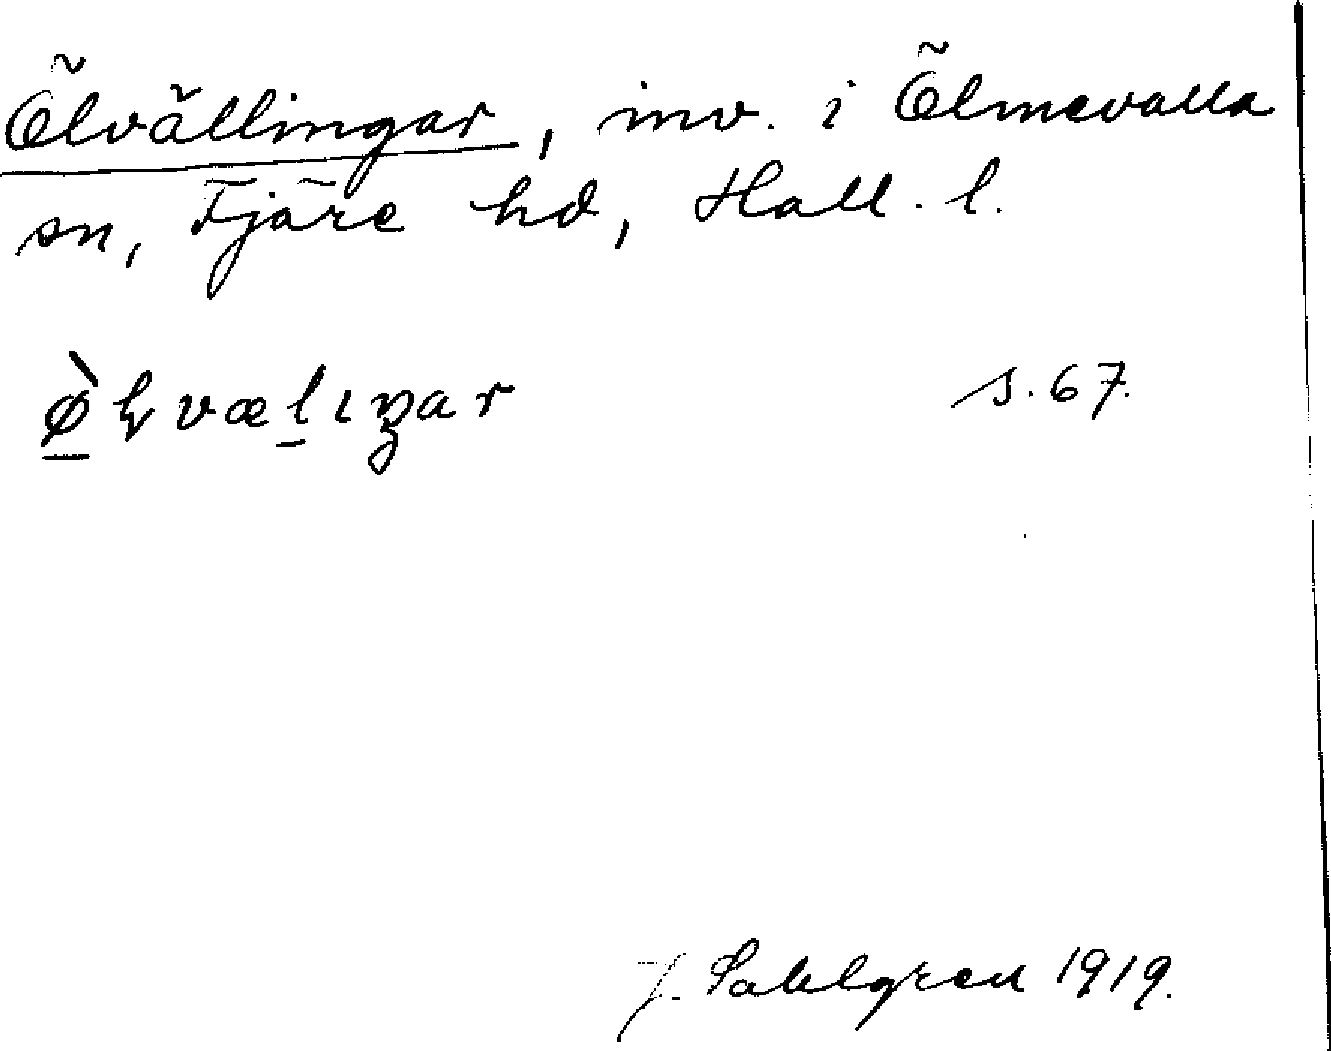 Ölvällingar, inv. i Ölmevalla
sn, Fjäre hd, Hall. l.
s. 67.
J. Sahlgren 1919.